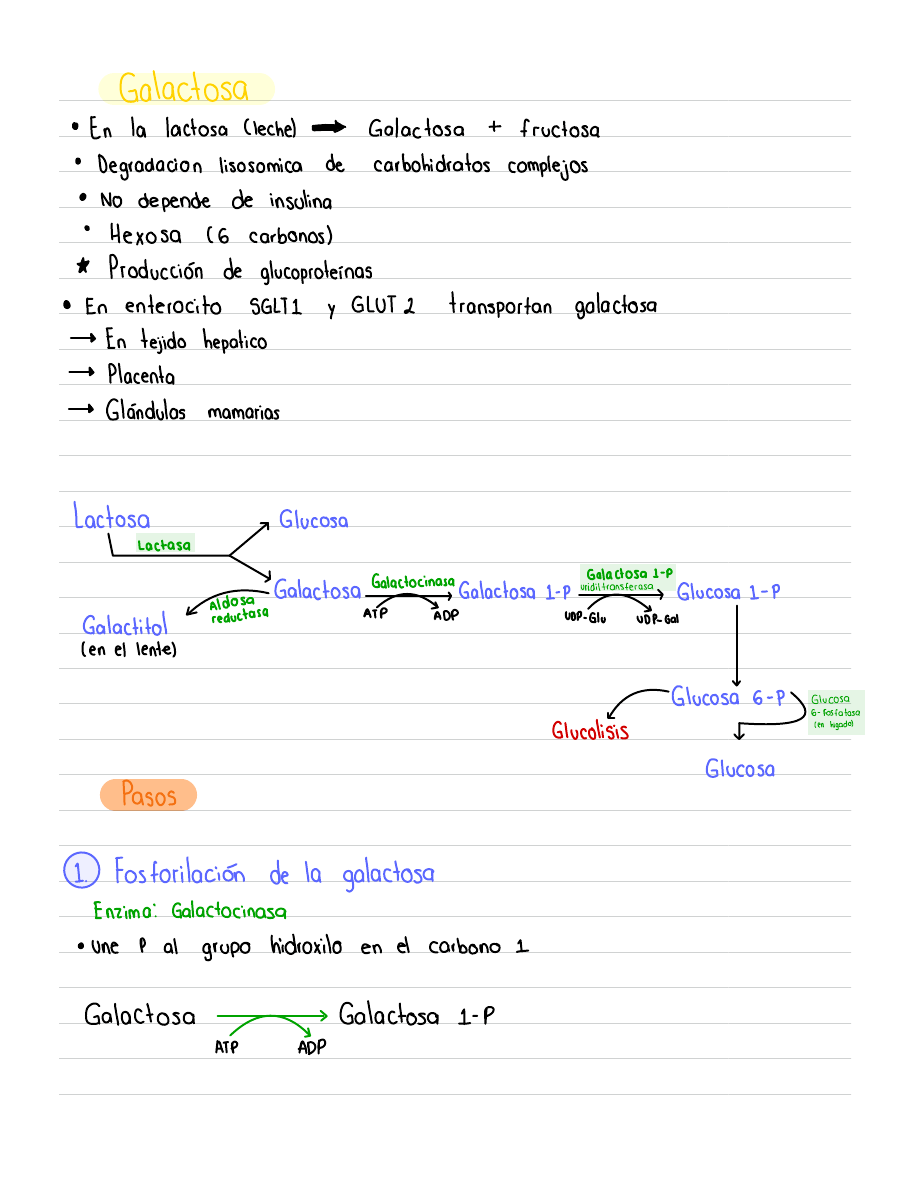 Galactosa
• En la lactosa (leche) → Galactosa + fructosa
• Degradacion lisosomica de carbohidratos complejos
• No depende de insulina
• Hexosa (6 carbonos)
★ Producción de glucoproteínas
• En enterocito SGLT1 y GLUT 2 transportan galactosa
→ En tejido hepatico
→ Placenta
→ Glándulas mamarias
Lactosa
Lactasa
Glucosa
Galactosa
Aldosa
reductasa
Galactitol
(en el lente)
Galactocinasa
ATP ADP
Galactosa 1-P
Galactosa 1-P
uridiltransferasa
UDP-Glu UDP-Gal
Glucosa 1-P
Glucosa 6-P
Glucolisis
Glucosa
6-fosfatasa
(en higado)
Glucosa
Pasos
1. Fosforilación de la galactosa
Enzima: Galactocinasa
• Une P al grupo hidroxilo en el carbono 1
Galactosa → Galactosa 1-P
ATP ADP